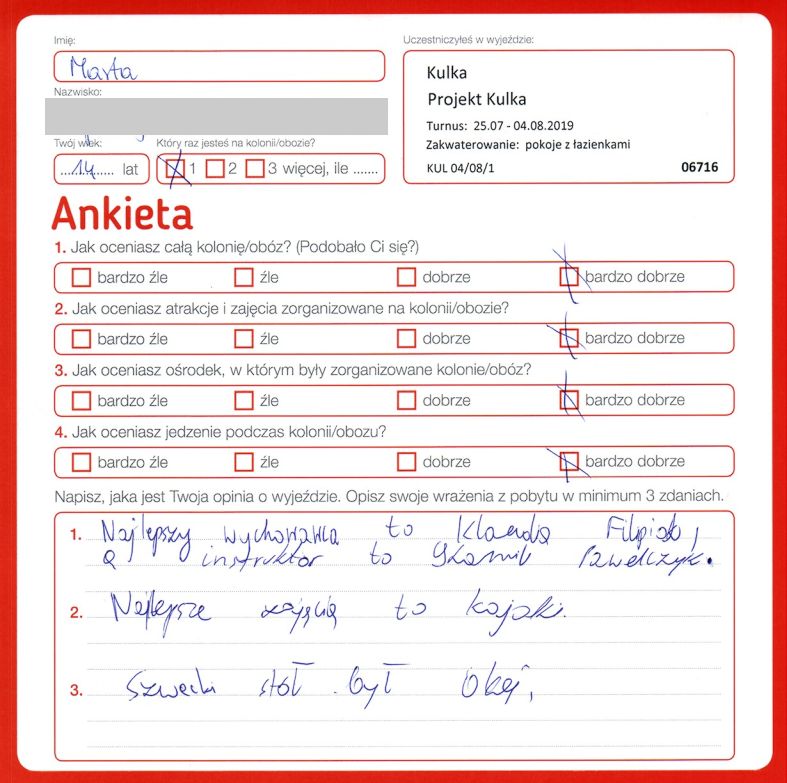 Imię:
Marta
Nazwisko:
Twój wiek:
14 lat
Który raz jesteś na kolonii/obozie?
1 2 3 więcej, ile .......
Uczestniczyłeś w wyjeździe:
Kulka
Projekt Kulka
Turnus: 25.07 - 04.08.2019
Zakwaterowanie: pokoje z łazienkami
KUL 04/08/1 06716
Ankieta
1. Jak oceniasz całą kolonię/obóz? (Podobało Ci się?)
bardzo źle źle dobrze bardzo dobrze
2. Jak oceniasz atrakcje i zajęcia zorganizowane na kolonii/obozie?
bardzo źle źle dobrze bardzo dobrze
3. Jak oceniasz ośrodek, w którym były zorganizowane kolonie/obóz?
bardzo źle źle dobrze bardzo dobrze
4. Jak oceniasz jedzenie podczas kolonii/obozu?
bardzo źle źle dobrze bardzo dobrze
Napisz, jaka jest Twoja opinia o wyjeździe. Opisz swoje wrażenia z pobytu w minimum 3 zdaniach.
1. Najlepszy wychowawca to Klaudia Filipiak,
a instruktor to Pawelczyk.
2. Najlepsze zajęcia to kajaki.
3. Szwecki stół był okej,